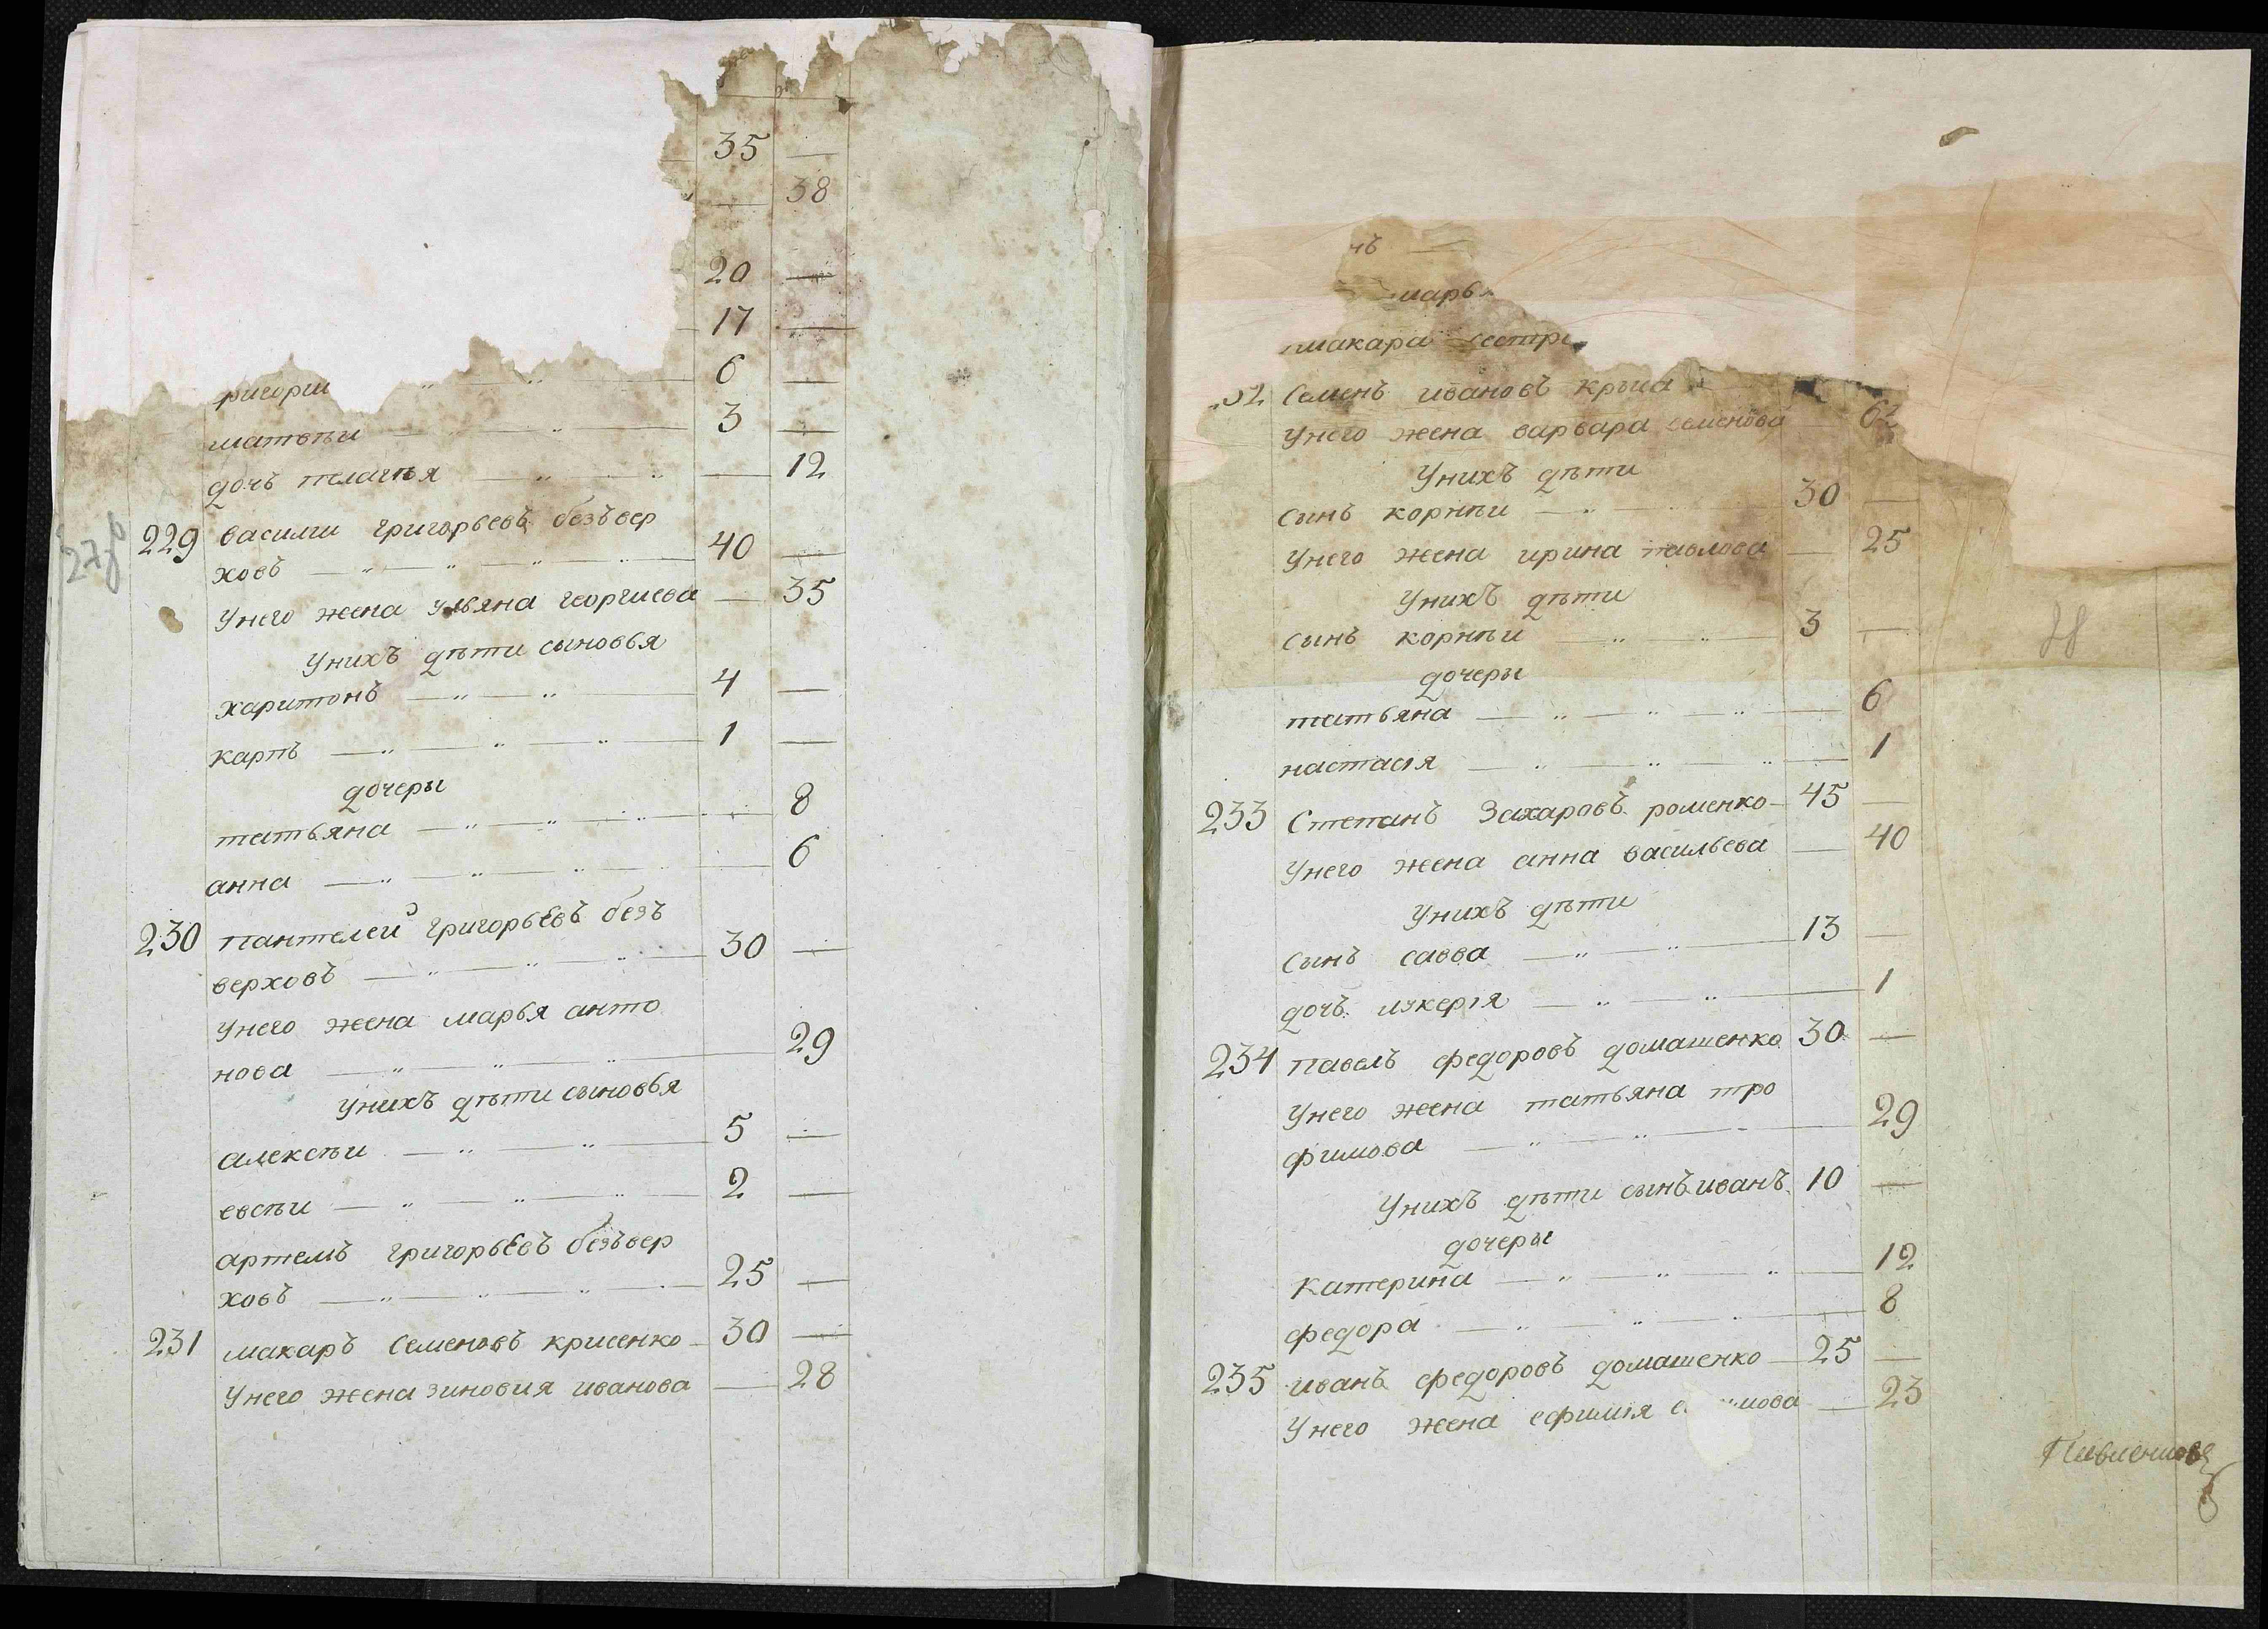 35 —
— 38
20 —
17 —
ригории 6 —
матвѣи 3 —
дочь пелагѣя — 12
229 василии григорьевъ безъвер
ховъ 40 —
Унего жена ульяна георгиева — 35
Унихъ дѣти сыновья
харитонъ 4 —
карпъ 1 —
дочеры
татьяна — 8
анна — 6
230 пантелей григорьевъ безъ
верховъ 30 —
Унего жена марья анто
нова — 29
Унихъ дѣти сыновья
алексѣи 5 —
евсѣи 2 —
артемъ григорьевъ безъвер
ховъ 25 —
231 макаръ Семеновъ крисенко 30 —
Унего жена зиновия иванова — 28
нъ —
марья
макара сестры
32 Семенъ ивановъ крыса
Унего жена варвара семенова — 62
Унихъ дѣти
сынъ корнѣи 30 —
Унего жена ирина павлова — 25
Унихъ дѣти
сынъ корнѣи 3 —
дочеры
татьяна — 6
настасія — 1
233 Степанъ Захаровъ роменко 45 —
Унего жена анна васильева — 40
Унихъ дѣти
сынъ савва 13 —
дочь лукерія — 1
234 павелъ федоровъ домашенко 30 —
Унего жена татьяна тро
фимова — 29
Унихъ дѣти сынъ иванъ 10 —
дочеры
катерина — 12
федора — 8
235 иванъ федоровъ домашенко 25 —
Унего жена ефимія е мова — 23